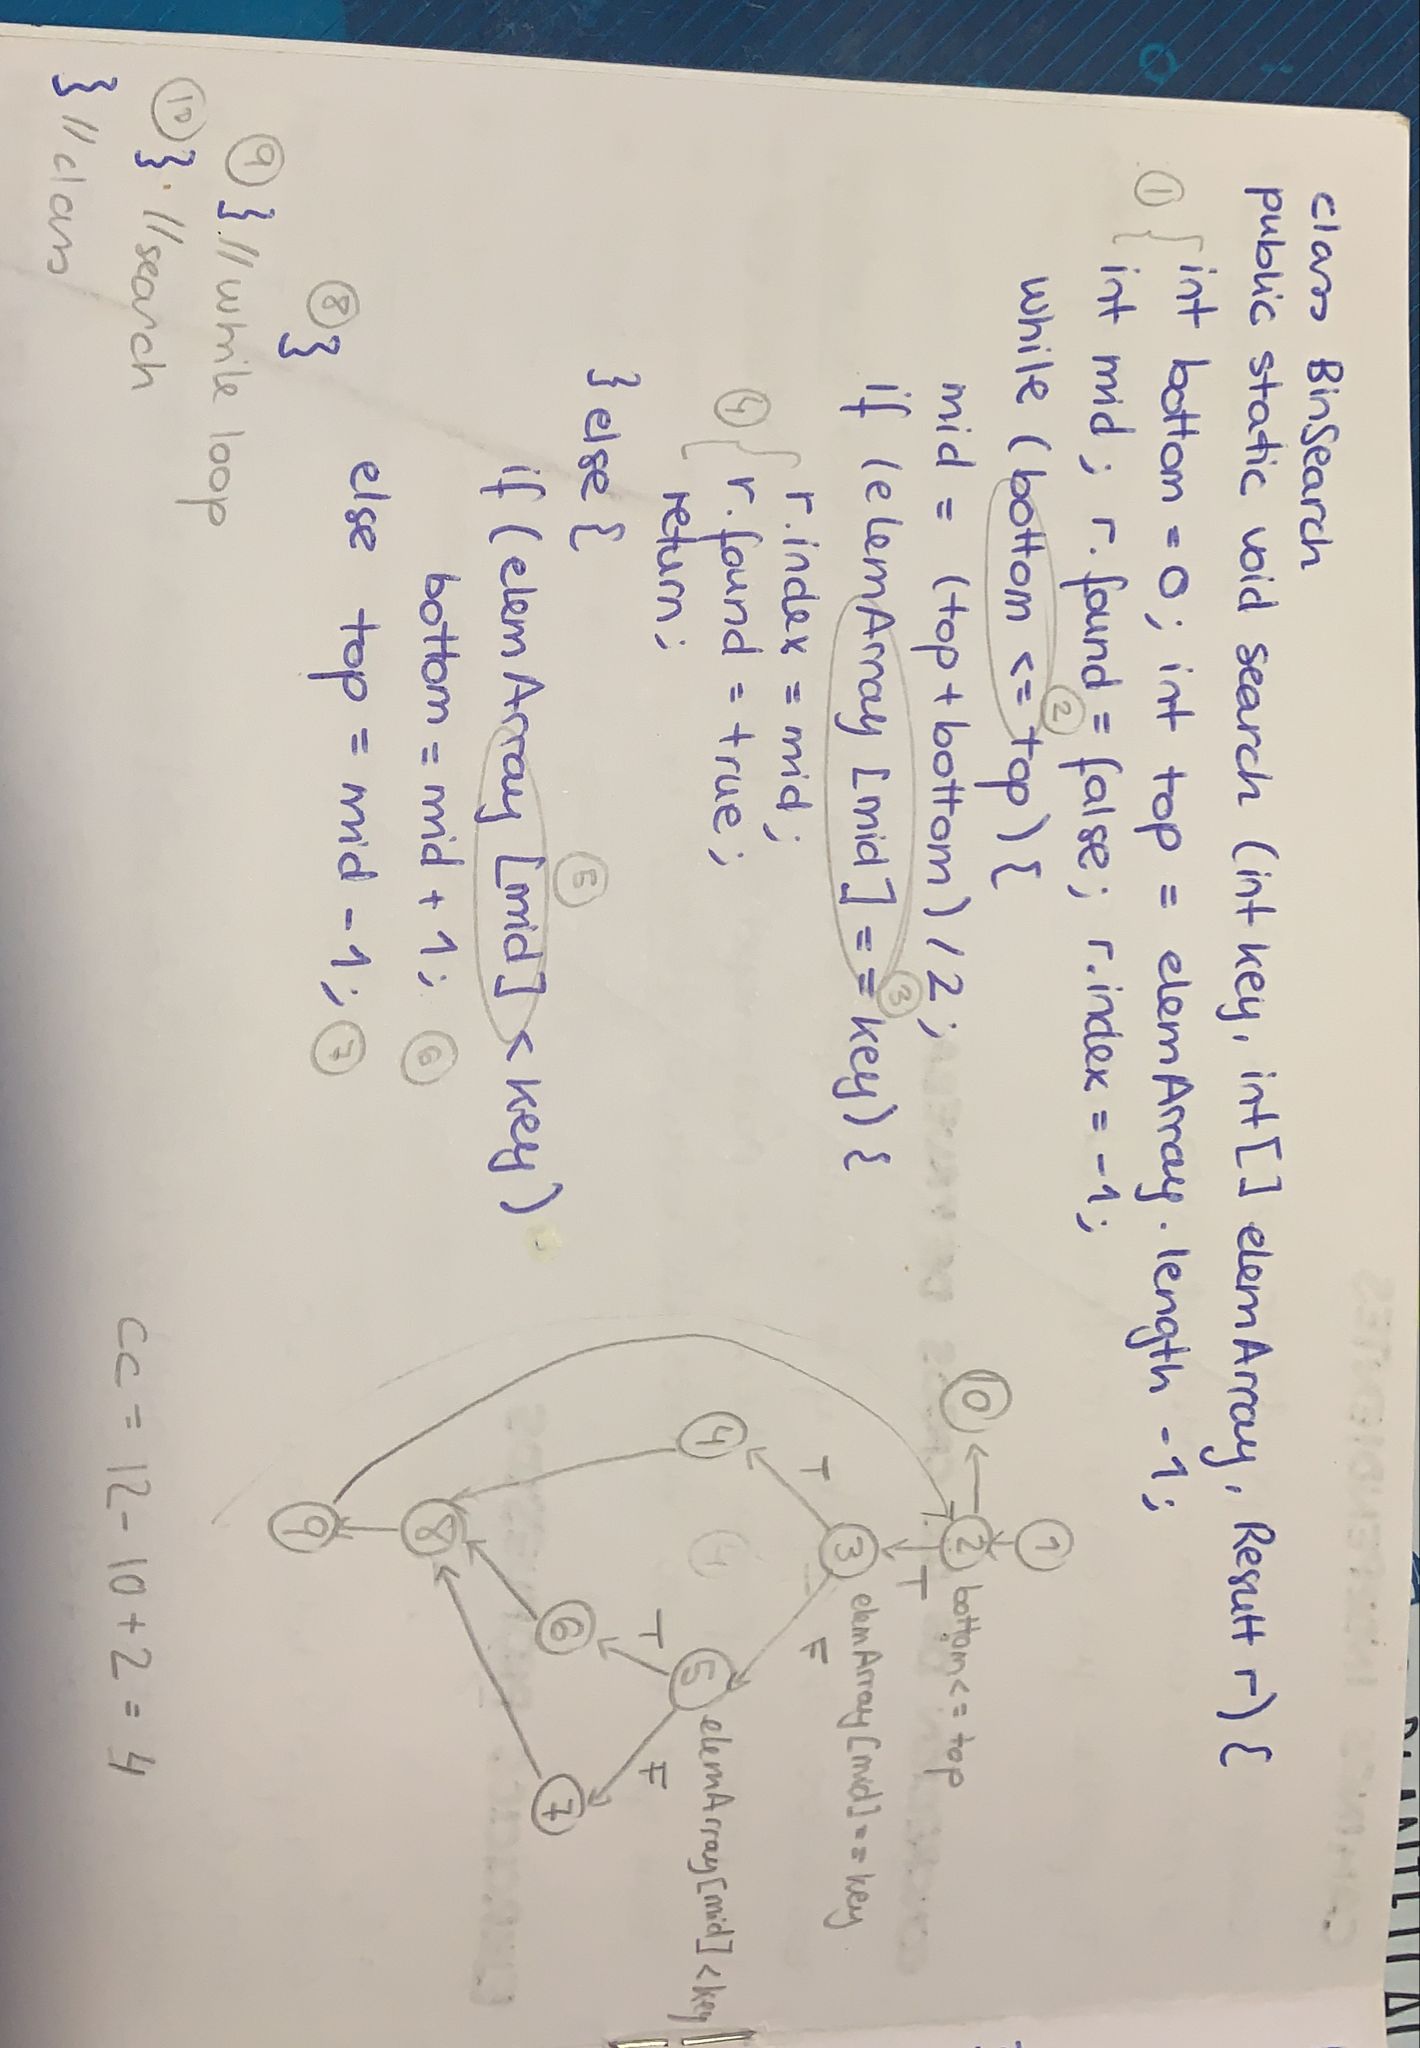 class BinSearch
public static void search (int key, int[] elemArray, Result r) {
① int bottom = 0; int top = elemArray.length -1;
int mid; r.found = false; r.index = -1;
②
while (bottom <= top) {
mid = (top + bottom) / 2;
③
if (elemArray [mid] == key) {
r.index = mid;
④ r.found = true;
return;
} else {
⑤
if (elemArray [mid] < key)
bottom = mid + 1; ⑥
else top = mid - 1; ⑦
⑧ }
⑨ } // while loop
⑩ } // search
} // class
1
10 2 bottom <= top
T
3 elemArray[mid] == key
T F
4 4 5 elemArray[mid] < key
T F
6 7
8
9
CC = 12 - 10 + 2 = 4